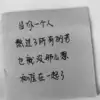 当你一个人
熬过了所有的苦
也就没那么想
和谁在一起了